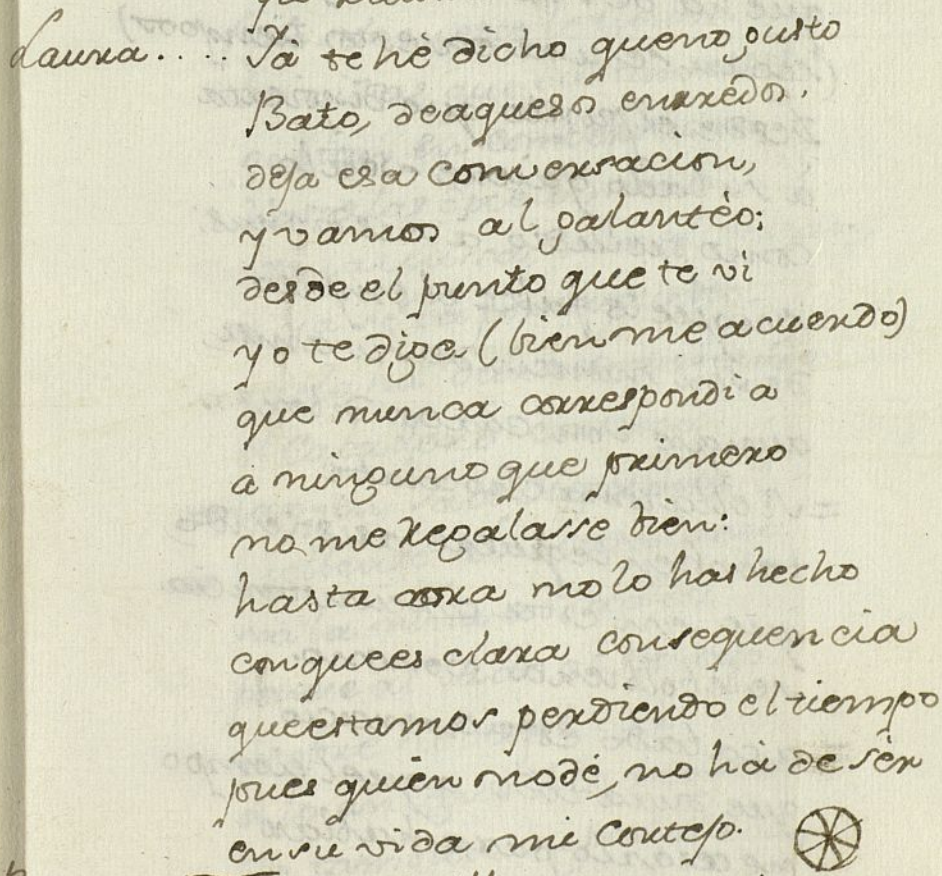 Laura.... Ya te hè dicho que no gusto
Bato, de aquesos enrredos.
deja esa conversacion,
y vamos al galantèo;
desde el punto que te vi
yo te dige (bien me acuerdo)
que nunca correspondi a
a ninguno que primero
no me regalasse bien:
hasta aora no lo has hecho
con que es clara consequencia
que estamos perdiendo el tiempo
pues quien no dè, no hà de sèr
en su vida mi Cortejo.